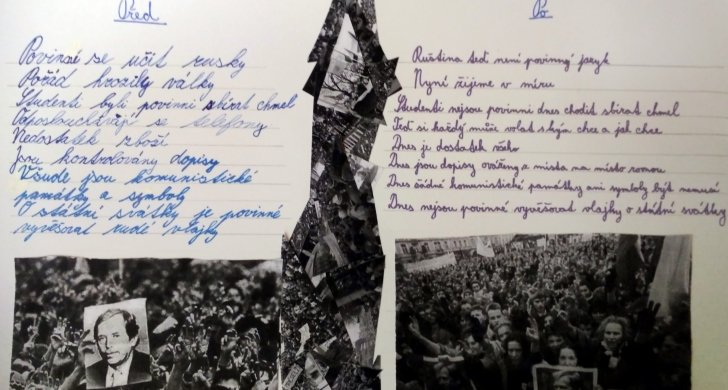 Před
Povinně se učit rusky
Pořád hrozily války
Studenti byli povinni sbírat chmel
Odposlouchávají se telefony
Nedostatek zboží
Jsou kontrolovány dopisy
Všude jsou komunistické
památky a symboly
O státní svátky je povinné
vyvěšovat rudé vlajky
Po
Ruština teď není povinný jazyk
Nyní žijeme v míru
Studenti nejsou povinni dnes chodit sbírat chmel
Teď si každý může volat s kým chce a jak chce
Dnes je dostatek všeho
Dnes jsou dopisy z místa na místo
Dnes žádné komunistické památky ani symboly být nemusí
Dnes nejsou povinné vyvěšovat vlajky o státní svátky